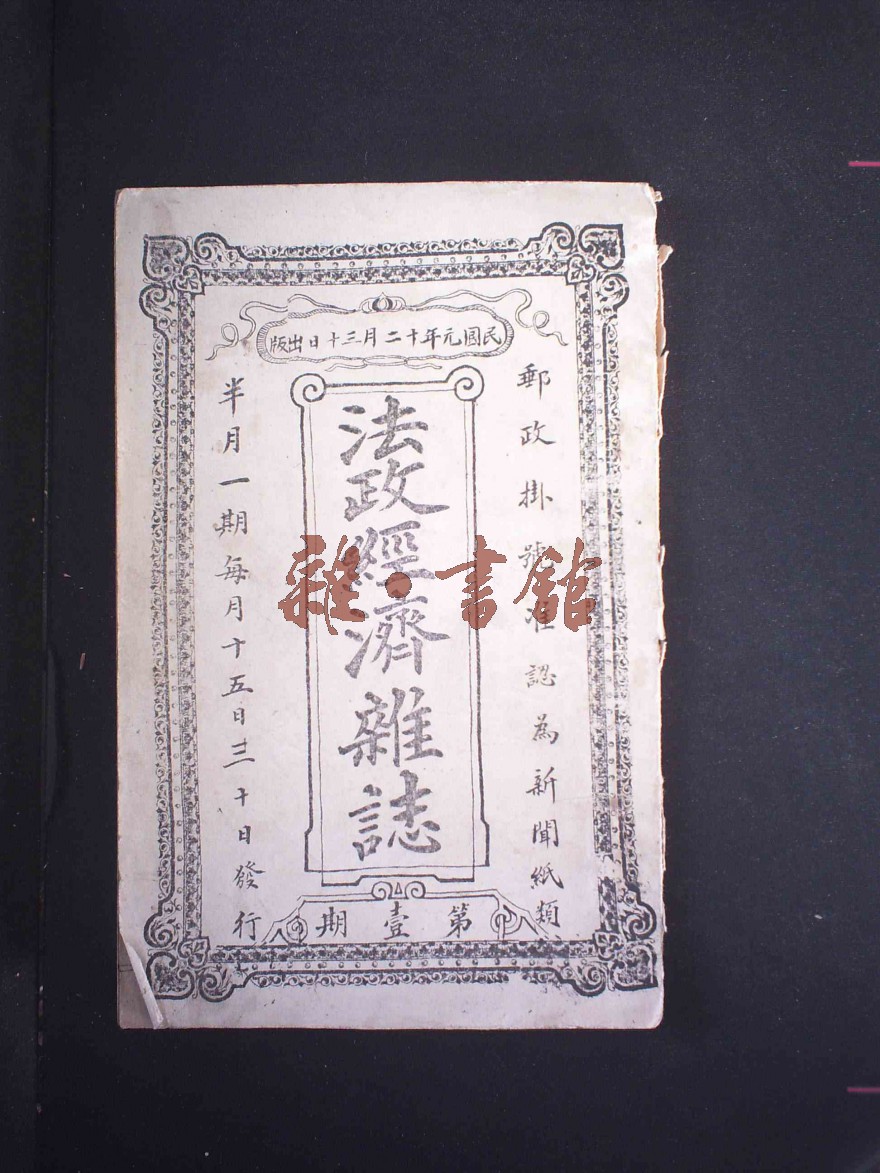 民國元年十二月三十日出版
郵政掛號准認為新聞紙類
法政經濟雜誌
半月一期每月十五日三十日發行
第壹期
雜·書館